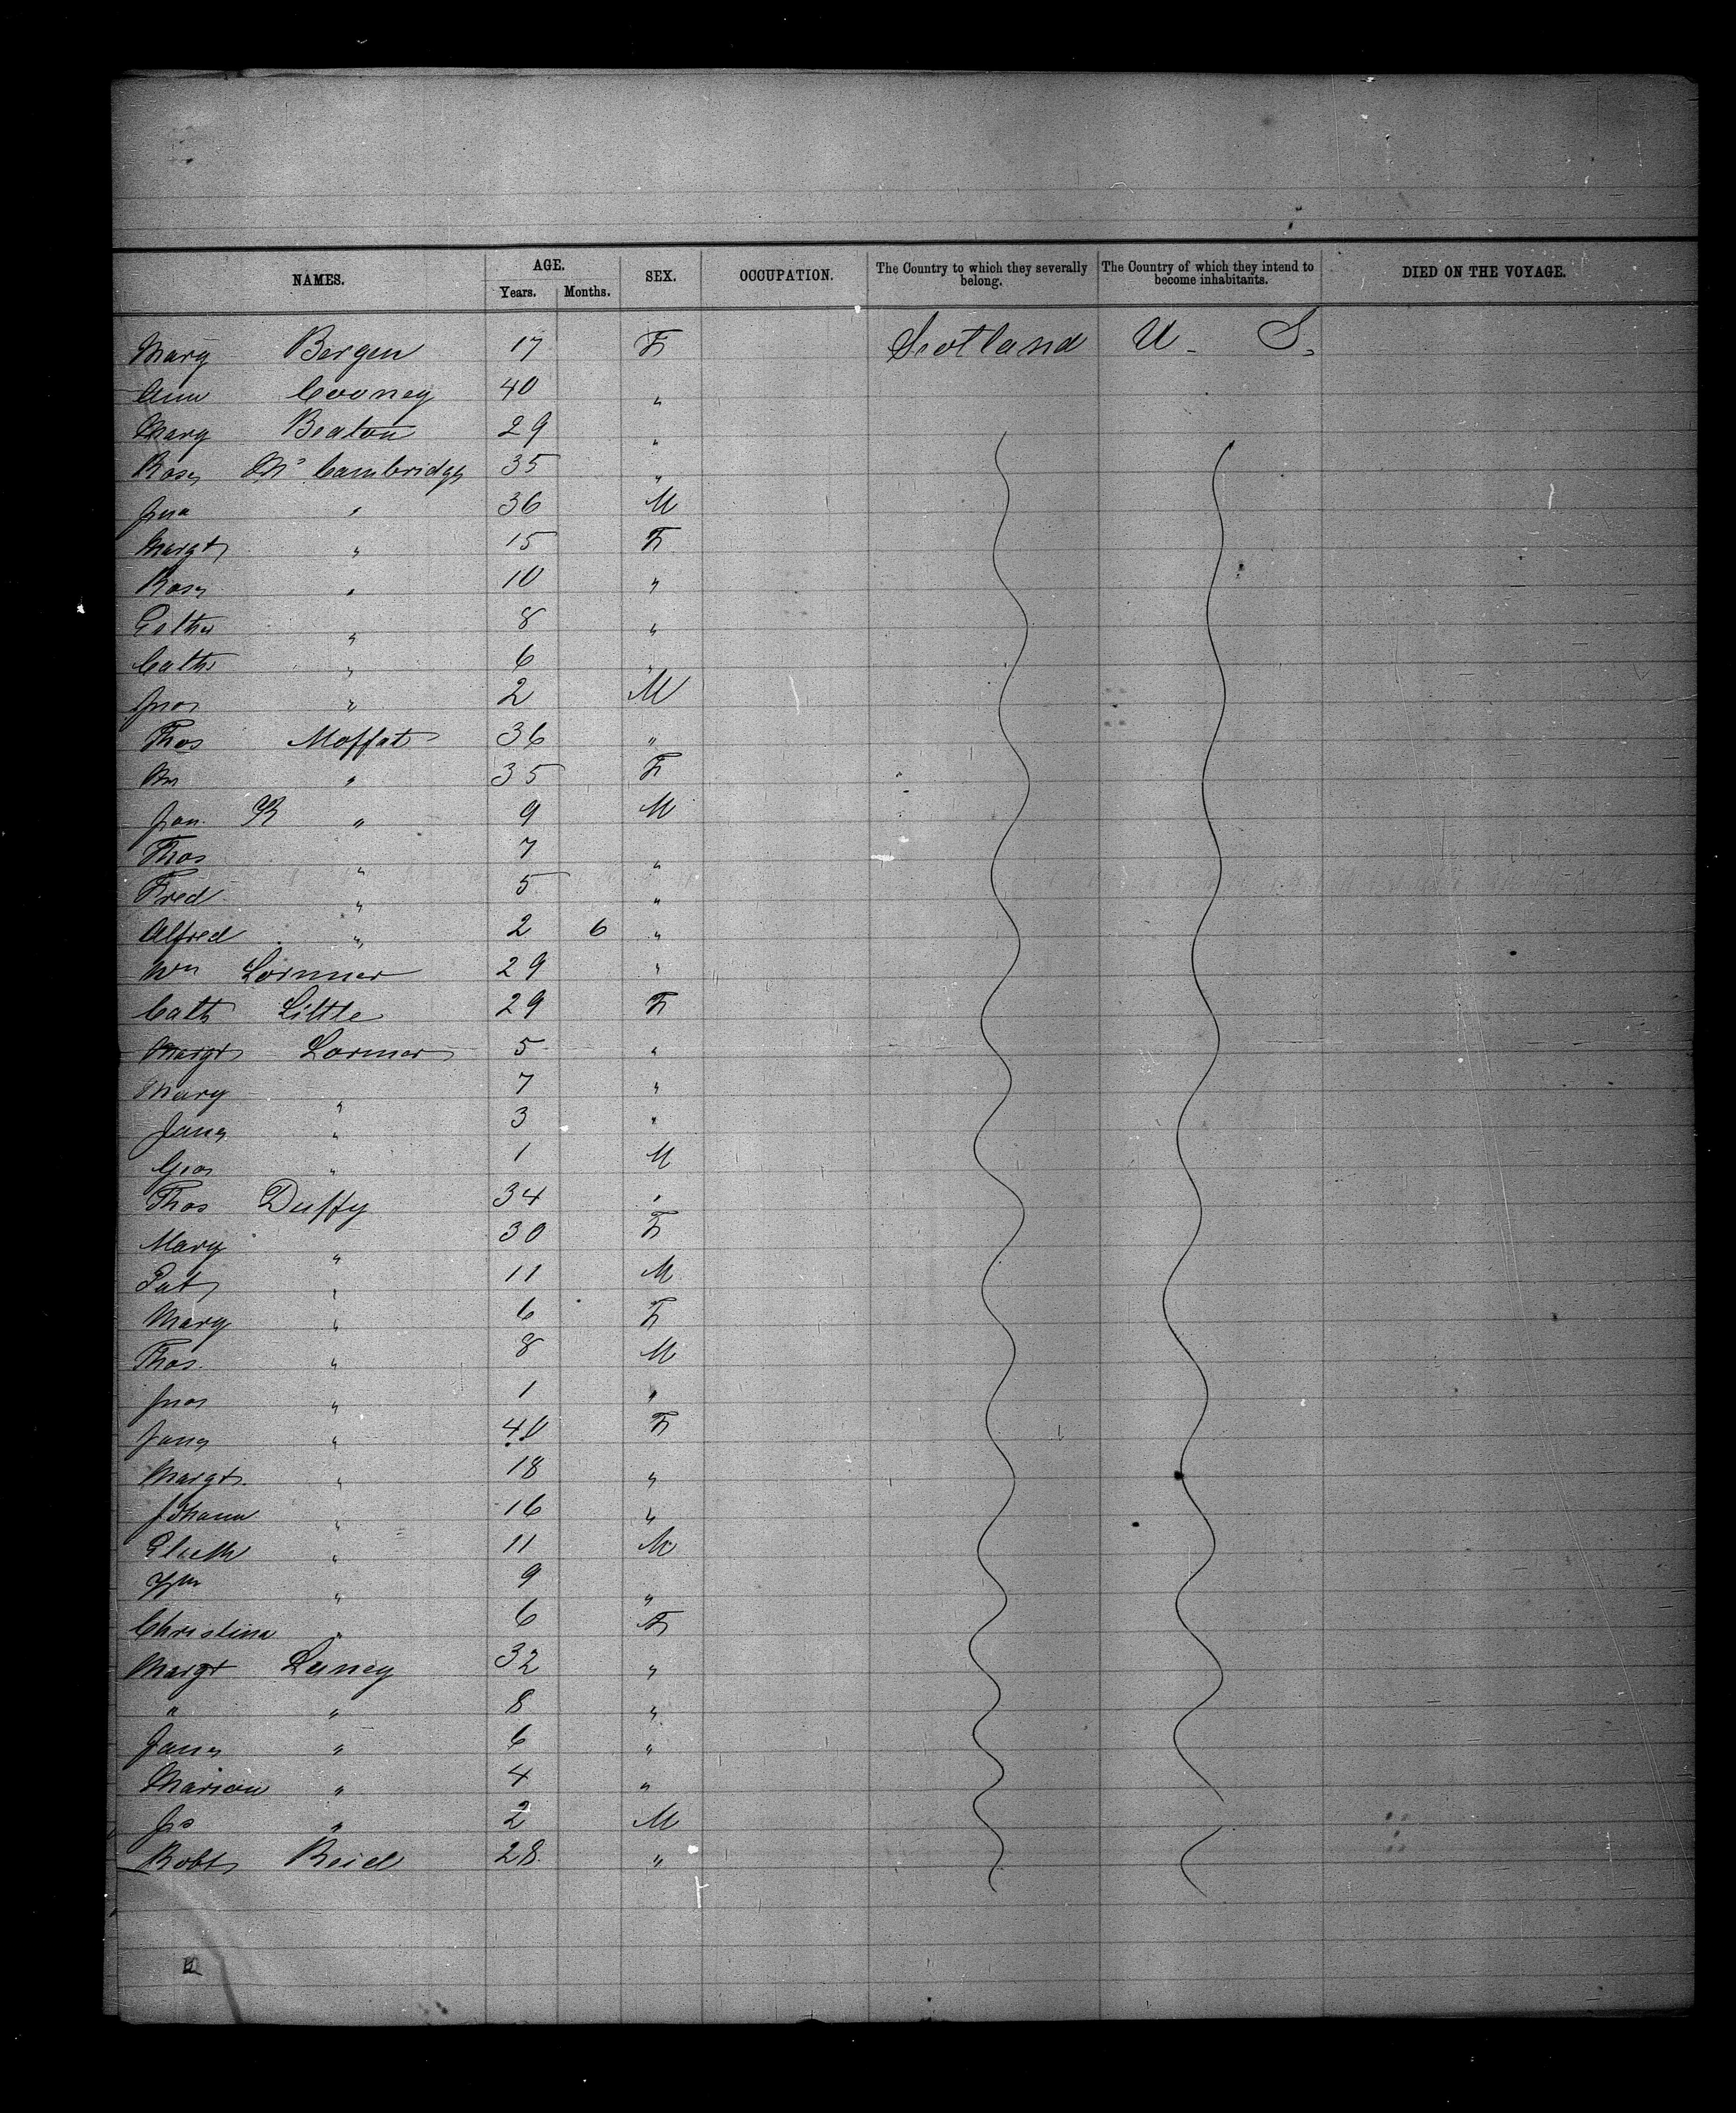 NAMES. AGE. SEX. OCCUPATION. The Country to which they severally belong. The Country of which they intend to become inhabitants. DIED ON THE VOYAGE.
Years. Months.
Mary Bergen 17 F Scotland U. S.
Ann Cooney 40 "
Mary Beaton 29 "
Rose Mc Cambridge 35 "
Jna " 36 M
Margt " 15 F
Rose " 10 "
Esther " 8 "
Cath " 6 "
Jno " 2 M
Thos Moffat 36 "
" 35 F
R " 9 M
Thos " 7 "
Fred " 5 "
Alfred " 2 6 "
Wm Lormer 29 "
Cath Little 29 F
Margt Lormer 5 "
Mary " 7 "
Jane " 3 "
Geo " 1 M
Thos Duffy 34 "
Mary " 30 F
Pat " 11 M
Mary " 6 F
Thos " 8 M
Jno " 1 "
Jane " 40 F
Margt " 18 "
Johann " 16 "
" 11 M
Wm " 9 "
Christina " 6 F
Margt Luney 32 "
" " 8 "
Jane " 6 "
Marion " 4 "
Js " 2 M
Robt Reid 28 "